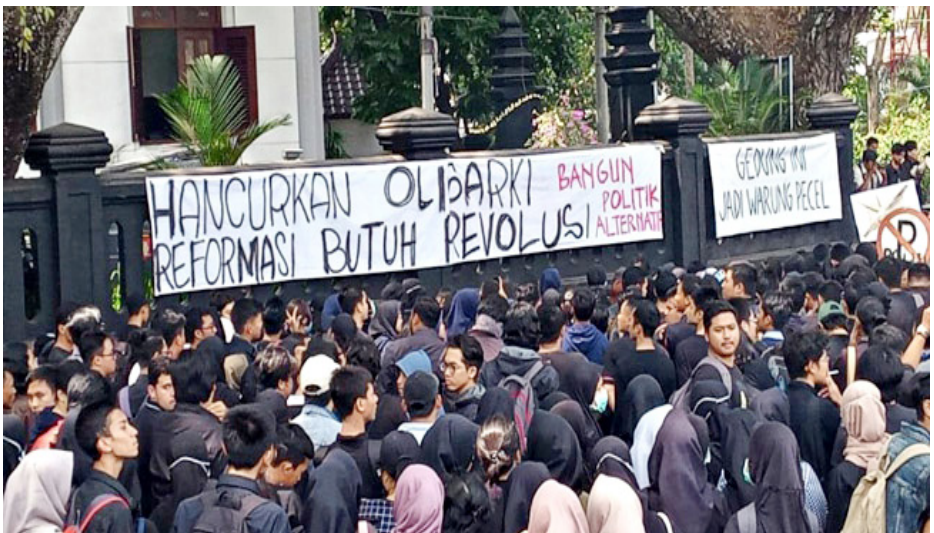 HANCURKAN OLIGARKI
REFORMASI BUTUH REVOLUSI
BANGUN
POLITIK
ALTERNATIF
GEDUNG INI
JADI WARUNG PECEL
P